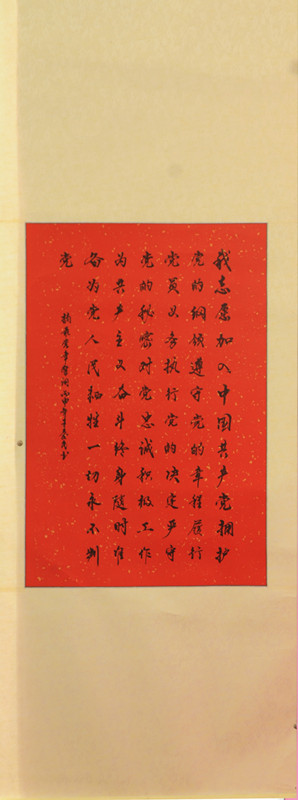 我志愿加入中国共产党拥护
党的纲领遵守党的章程履行
党员义务执行党的决定严守
党的秘密对党忠诚积极工作
为共产主义奋斗终身随时准
备为党人民牺牲一切永不判
党
丙申年